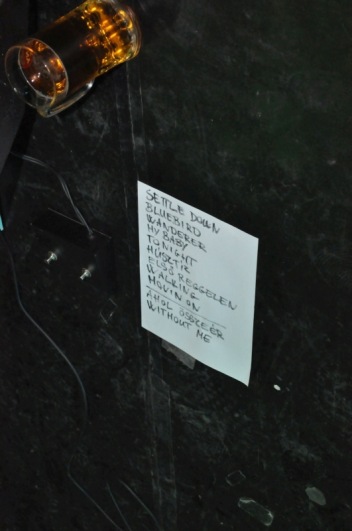 SETTLE DOWN
BLUEBIRD
WANDERER
MY BABY
TONIGHT
HÚSZ ÉV
ELSŐ REGGELEN
WALKING
MOVIN ON
AHOL ÖSSZEÉR
WITHOUT ME